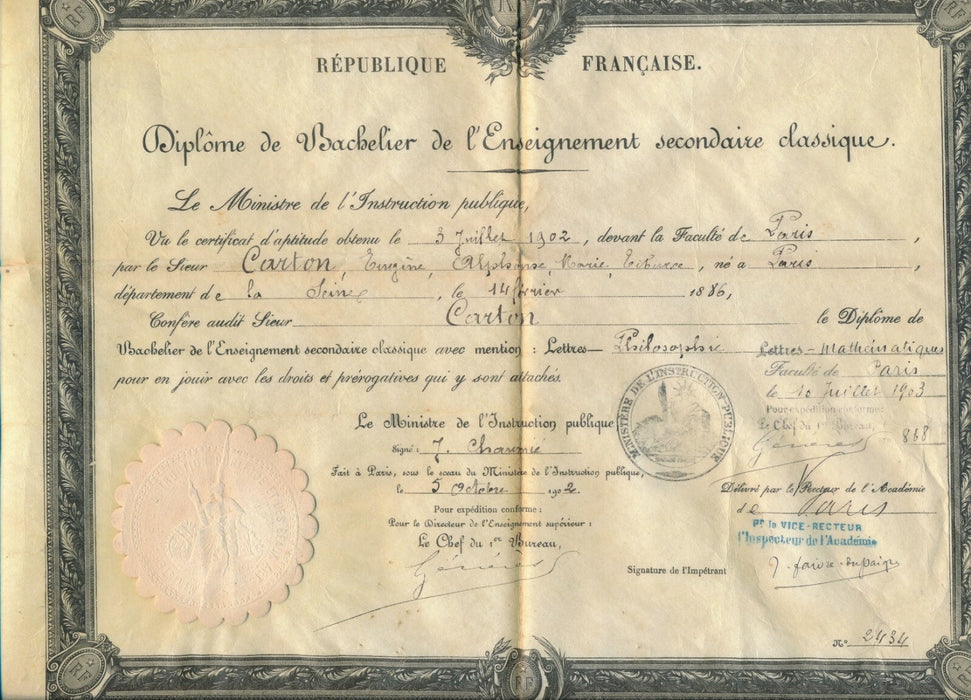 RÉPUBLIQUE FRANÇAISE.
Diplôme de Bachelier de l'Enseignement secondaire classique.
Le Ministre de l'Instruction publique,
Vu le certificat d'aptitude obtenu le 3 Juillet 1902, devant la Faculté de Paris,
par le Sieur Carton, Eugène, Alphonse, Marie, Tiburce, né à Paris,
département de la Seine, le 14 février 1886,
Confère audit Sieur Carton le Diplôme de
Bachelier de l'Enseignement secondaire classique avec mention : Lettres - Philosophie
pour en jouir avec les droits et prérogatives qui y sont attachés.
Lettres - Mathématiques
Faculté de Paris
le 10 Juillet 1903
Pour expédition conforme :
Le Chef du 1er Bureau,
868
MINISTÈRE DE L'INSTRUCTION PUBLIQUE
Le Ministre de l'Instruction publique
Signé : J. Chaumié
Fait à Paris, sous le sceau du Ministère de l'Instruction publique,
le 5 Octobre 1902.
Pour expédition conforme :
Pour le Directeur de l'Enseignement supérieur :
Le Chef du 1er Bureau,
Délivré par le Recteur de l'Académie
de Paris
Pr le VICE-RECTEUR
l'Inspecteur de l'Académie
Signature de l'Impétrant
N° 2434
RF
RF
RF
RF
RF